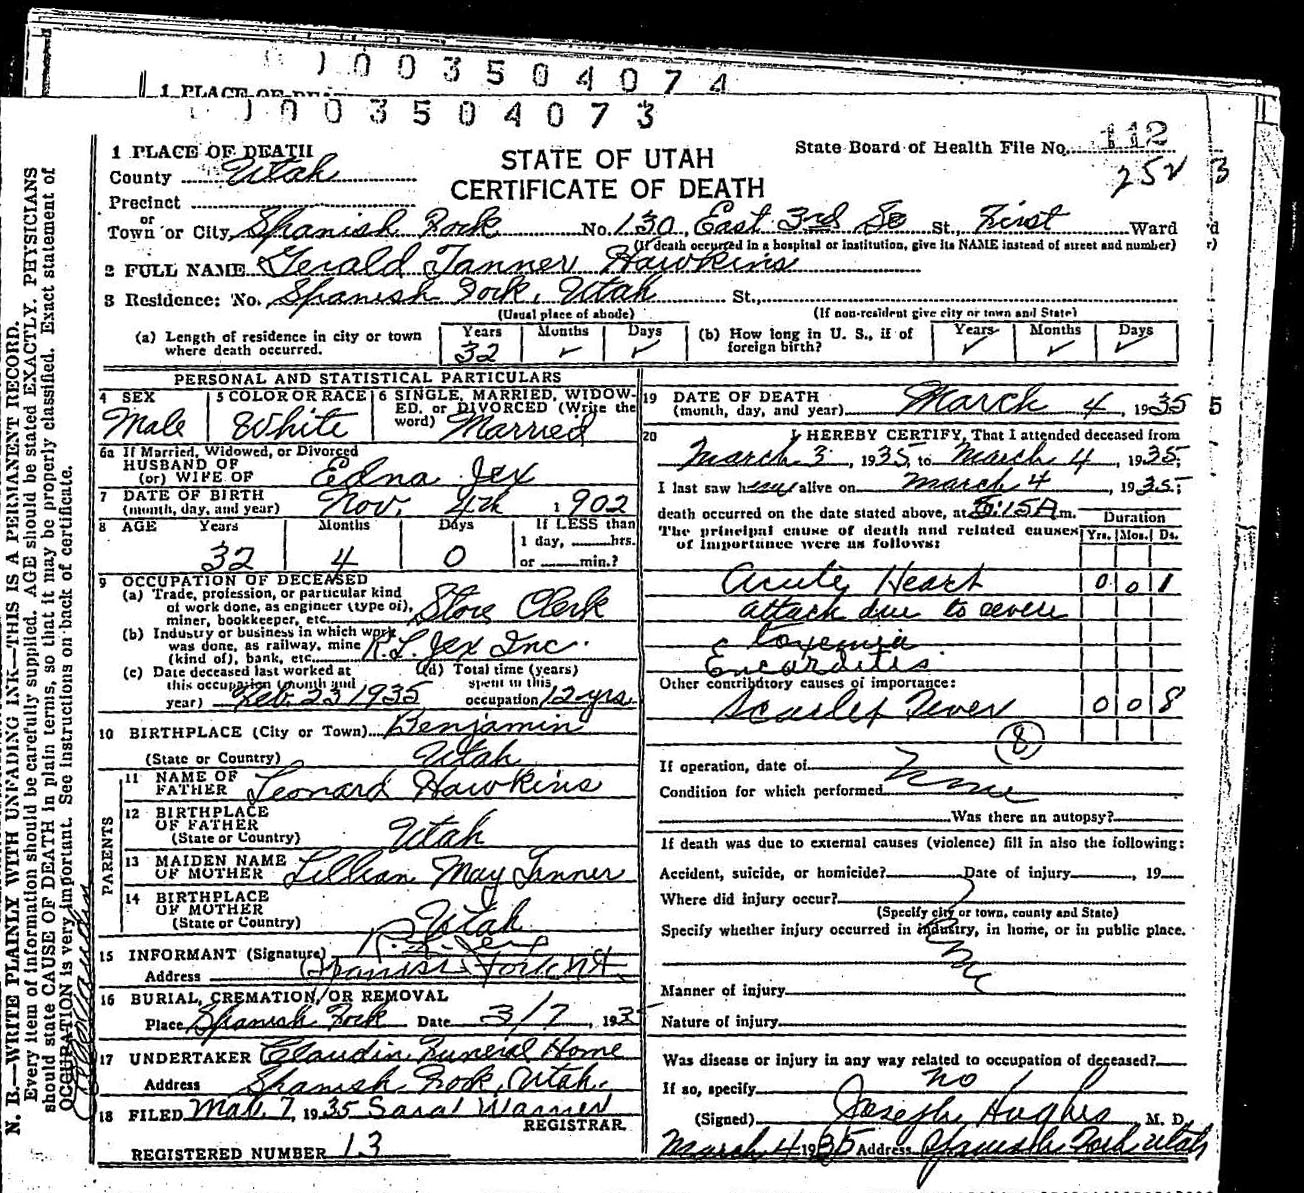 003504074
1 PLACE OF DEATH
003504073
1 PLACE OF DEATH
STATE OF UTAH
CERTIFICATE OF DEATH
State Board of Health File No. 112
252
County Utah
Precinct
or
Town or City Spanish Fork No. 130 East 3rd So St., First Ward
(If death occurred in a hospital or institution, give its NAME instead of street and number)
2 FULL NAME Gerald Tanner Hawkins
3 Residence: No. Spanish Fork, Utah St.,
(Usual place of abode) (If non-resident give city or town and State)
(a) Length of residence in city or town where death occurred. Years 32 Months ✓ Days ✓
(b) How long in U. S., if of foreign birth? Years ✓ Months ✓ Days ✓
PERSONAL AND STATISTICAL PARTICULARS
4 SEX Male
5 COLOR OR RACE White
6 SINGLE, MARRIED, WIDOWED, or DIVORCED (Write the word) Married
6a If Married, Widowed, or Divorced
HUSBAND OF
(or) WIFE OF Edna Jex
7 DATE OF BIRTH
(month, day, and year) Nov. 4th 1902
8 AGE Years 32 Months 4 Days 0
If LESS than
1 day, hrs.
or min.?
9 OCCUPATION OF DECEASED
(a) Trade, profession, or particular kind
of work done, as engineer (type of),
miner, bookkeeper, etc. Store Clerk
(b) Industry or business in which work
was done, as railway, mine
(kind of), bank, etc. R. L. Jex Inc.
(c) Date deceased last worked at
this occupation (month and
year) Feb. 23 1935
(d) Total time (years)
spent in this
occupation 12 yrs.
10 BIRTHPLACE (City or Town) Benjamin
(State or Country) Utah
PARENTS
11 NAME OF
FATHER Leonard Hawkins
12 BIRTHPLACE
OF FATHER
(State or Country) Utah
13 MAIDEN NAME
OF MOTHER Lillian May Tanner
14 BIRTHPLACE
OF MOTHER
(State or Country) Utah
15 INFORMANT (Signature) R. L. Jex
Address Spanish Fork Ut
16 BURIAL, CREMATION, OR REMOVAL
Place Spanish Fork Date 3/7, 1935
17 UNDERTAKER Claudin Funeral Home
Address Spanish Fork, Utah.
18 FILED Mar. 7, 1935 Sarah Warner
REGISTRAR
REGISTERED NUMBER 13
19 DATE OF DEATH
(month, day, and year) March 4, 1935
20 I HEREBY CERTIFY, That I attended deceased from
March 3, 1935, to March 4, 1935;
I last saw him alive on March 4, 1935;
death occurred on the date stated above, at 5:15 A m.
The principal cause of death and related causes
of importance were as follows:
Duration
Yrs. Mos. Ds.
Acute Heart 0 0 1
attack due to severe
toxemia
Encarditis
Other contributory causes of importance:
Scarlet Fever 0 0 8
8
If operation, date of
Condition for which performed None
Was there an autopsy?
If death was due to external causes (violence) fill in also the following:
Accident, suicide, or homicide? Date of injury, 19
Where did injury occur?
(Specify city or town, county and State)
Specify whether injury occurred in industry, in home, or in public place.
Manner of injury
Nature of injury
Was disease or injury in any way related to occupation of deceased?
If so, specify no
(Signed) Joseph Hughes M. D.
March 4 1935 Address Spanish Fork Utah
N. B.—WRITE PLAINLY WITH UNFADING INK—THIS IS A PERMANENT RECORD.
Every item of information should be carefully supplied. AGE should be stated EXACTLY. PHYSICIANS
should state CAUSE OF DEATH in plain terms, so that it may be properly classified. Exact statement of
OCCUPATION is very important. See instructions on back of certificate.